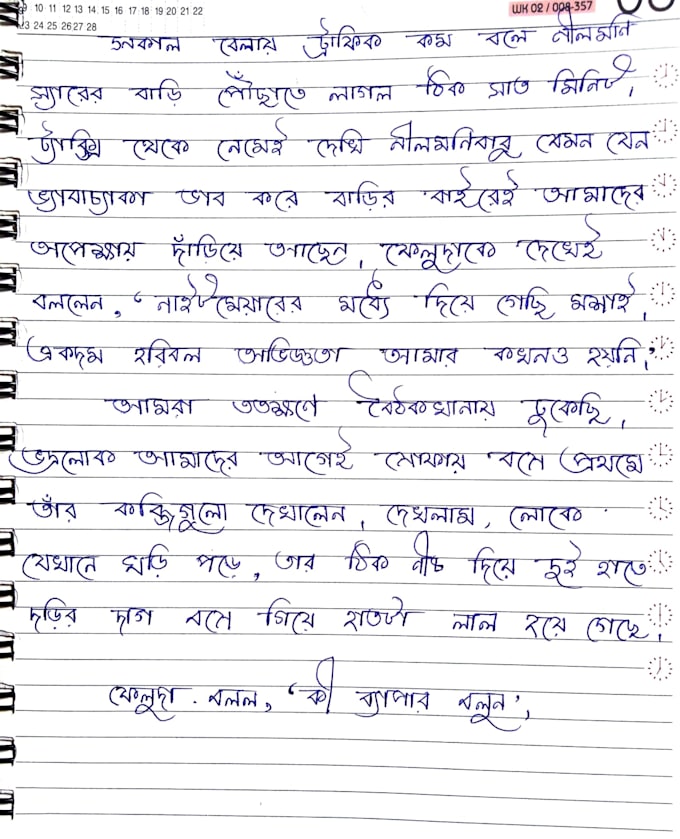 10 11 12 13 14 15 16 17 18 19 20 21 22
WK 02 / 008-357
23 24 25 26 27 28
সকাল বেলায় ট্রাফিক কম বলে নীলমনি
স্যারের বাড়ি পৌঁছাতে লাগল ঠিক সাত মিনিট।
ট্যাক্সি থেকে নেমেই দেখি নীলমনিবাবু কেমন যেন
ভ্যাবাচ্যাকা ভাব করে বাড়ির বাইরেই আমাদের
অপেক্ষায় দাঁড়িয়ে আছেন। ফেলুদাকে দেখেই
বললেন, ‘নাইটমেয়ারের মধ্যে দিয়ে গেছি মশাই।
একদম হরিবল অভিজ্ঞতা আমার কখনও হয়নি।’
আমরা ততক্ষণে বৈঠকখানায় ঢুকেছি।
ভদ্রলোক আমাদের আগেই সোফায় বসে প্রথমে
তাঁর কব্জিগুলো দেখালেন। দেখলাম, লোকে
যেখানে ঘড়ি পড়ে, তার ঠিক নীচ দিয়ে দুই হাতে
দড়ির দাগ বসে গিয়ে হাতটা লাল হয়ে গেছে।
ফেলুদা বলল, ‘কী ব্যাপার বলুন’।